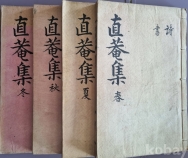 詩
書
直菴集 春
直菴集 夏
直菴集 秋
直菴集 冬
kobay